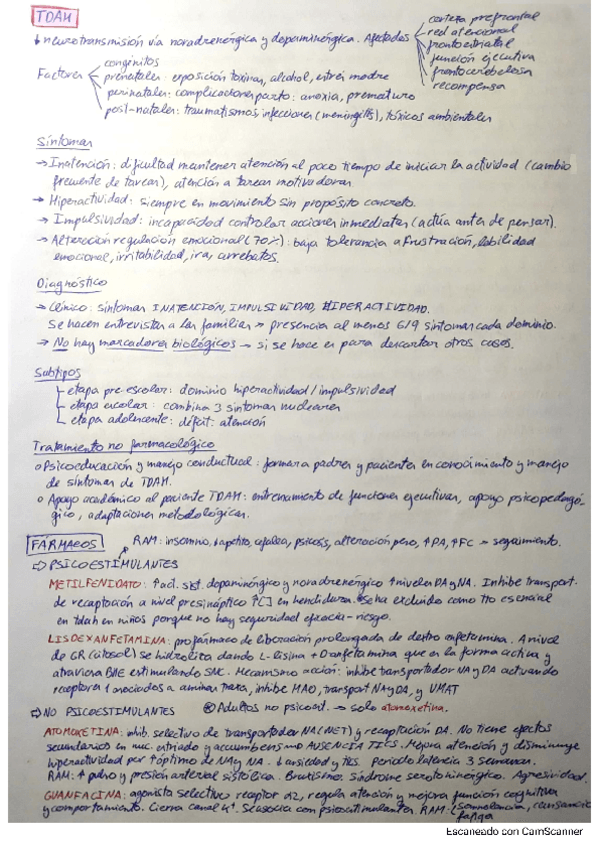 TDAH
↓ neurotransmisión vía noradrenérgica y dopaminérgica. Afectados
corteza prefrontal
red atencional
frontoestriatal
función ejecutiva
frontocerebelosa
recompensa
Factores
congénitos
prenatales: exposición toxinas, alcohol, estrés madre
perinatales: complicaciones parto: anoxia, prematuro
post-natales: traumatismos, infecciones (meningitis), tóxicos ambientales
Síntomas
→ Inatención: dificultad mantener atención al poco tiempo de iniciar la actividad (cambio
frecuente de tareas), atención a tareas motivadoras.
→ Hiperactividad: siempre en movimiento sin propósito concreto.
→ Impulsividad: incapacidad controlar acciones inmediatas (actúa antes de pensar).
→ Alteración regulación emocional (70%): baja tolerancia a frustración, labilidad
emocional, irritabilidad, ira, arrebatos.
Diagnóstico
→ Clínico: síntomas INATENCIÓN, IMPULSIVIDAD, HIPERACTIVIDAD.
Se hacen entrevistas a las familias → presencia al menos 6/9 síntomas cada dominio.
→ No hay marcadores biológicos → si se hace es para descartar otras cosas.
Subtipos
etapa pre escolar: dominio hiperactividad/impulsividad
etapa escolar: combina 3 síntomas nucleares
etapa adolescente: déficit atención
Tratamiento no farmacológico
o Psicoeducación y manejo conductual: formar a padres y pacientes en conocimiento y manejo
de síntomas de TDAH.
o Apoyo académico al paciente TDAH: entrenamiento de funciones ejecutivas, apoyo psicopedagó-
gico, adaptaciones metodológicas.
FÁRMACOS
RAM: insomnio, ↓apetito, cefalea, psicosis, alteración peso, ↑PA, ↑FC → seguimiento.
⇨ PSICOESTIMULANTES
METILFENIDATO: ↑act. sist. dopaminérgico y noradrenérgico ↑niveles DA y NA. Inhibe transport.
de recaptación a nivel presináptico ↑[] en hendidura. Se ha excluido como tto esencial
en tdah en niños porque no hay seguridad eficacia-riesgo.
LISDEXANFETAMINA: profármaco de liberación prolongada de dextro anfetamina. A nivel
de GR (citosol) se hidroliza dando L-lisina + D anfetamina que es la forma activa y
atraviesa BHE estimulando SNC. Mecanismo acción: inhibe transportador NA y DA activando
receptores 1 asociados a aminas traza, inhibe MAO, transport NA y DA, y VMAT
⇨ NO PSICOESTIMULANTES
Adultos no psicoest. → solo atomoxetina.
ATOMOXETINA: inhib. selectivo de transportador NA (NET) y recaptación DA. No tiene efectos
secundarios en nuc. estriado y accumbens AUSENCIA TICS. Mejora atención y disminuye
hiperactividad por ↑óptimo de NA y NA. ↓ansiedad y tics. Periodo latencia 3 semanas.
RAM: ↑ pulso y presión arterial sistólica. Bruxismo. Síndrome serotoninérgico. Agresividad.
GUANFACINA: agonista selectivo receptor α2, regula atención y mejora función cognitiva
y comportamiento. Cierra canal K⁺. Se asocia con psicoestimulantes. RAM: (somnolencia, cansancio
fatiga
Escaneado con CamScanner